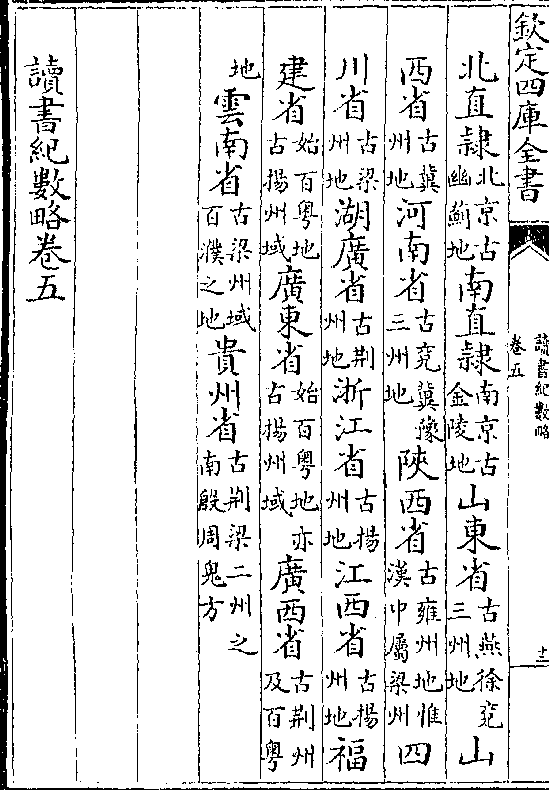 欽定四庫全書
讀書紀數略
卷五
十二
北直隸北京古幽薊地南直隸南京古金陵地山東省古燕徐兗三州地山
西省古冀州地河南省古兗冀豫三州地陜西省古雍州地惟漢中屬梁州四
川省古梁州地湖廣省古荆州地浙江省古揚州地江西省古揚州地福
建省始百粤地古揚州域廣東省始百粤地亦古揚州域廣西省古荆州及百粤
地雲南省古梁州域百濮之地貴州省古荆梁二州之南殷周鬼方
讀書紀數略卷五